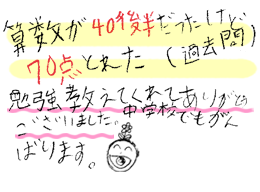 算数が40後半だったけど
70点とれた(過去問)
勉強教えてくれてありがとう
ございました。中学校でもがん
ばります。